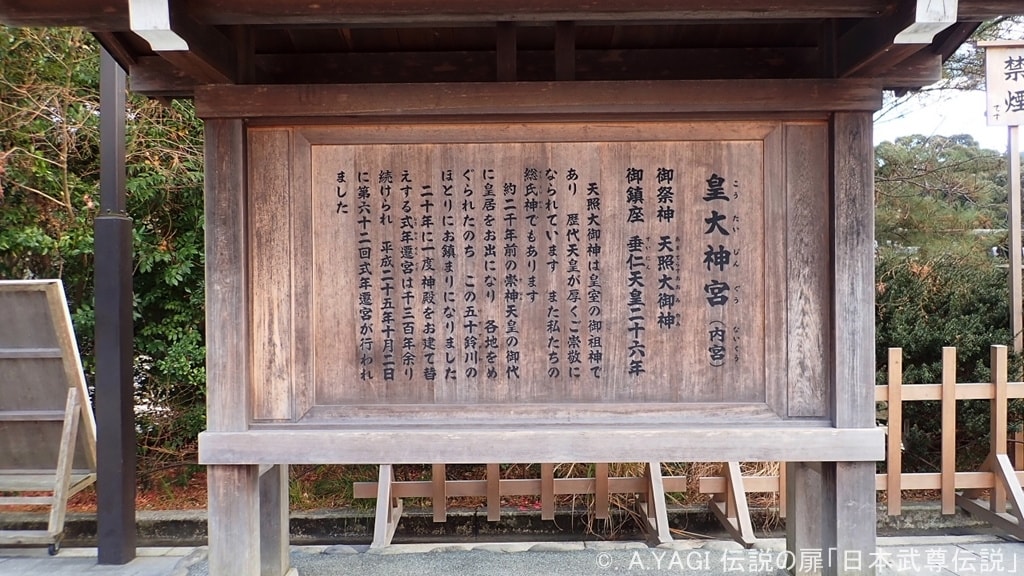 皇大神宮（内宮）
こうたいじんぐう　ないくう
御祭神　天照大御神
御鎮座　垂仁天皇二十六年
すいにん
天照大御神は皇室の御祖神で
あり　歴代天皇が厚くご崇敬に
なられています　また私たちの
総氏神でもあります
約二千年前の崇神天皇の御代
に皇居をお出になり　各地をめ
ぐられたのち　この五十鈴川の
ほとりにお鎮まりになりました
二十年に一度神殿をお建て替
えする式年遷宮は千三百年余り
続けられ　平成二十五年十月二日
に第六十二回式年遷宮が行われ
ました
禁煙
です
©. A.YAGI 伝説の扉「日本武尊伝説」